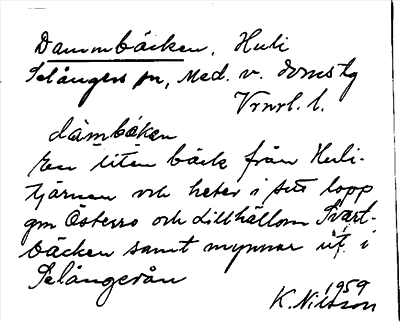 Dammbäcken, Huli
Selångers sn, Med. v. domsbg
Vrnrl. l.
dàmbäken
En liten bäck från Huli-
tjärnen och heter i sitt lopp
gm Österro och Lillhällom Svart-
bäcken samt mynnar ut i
Selångerån
1959
K. Nilsson